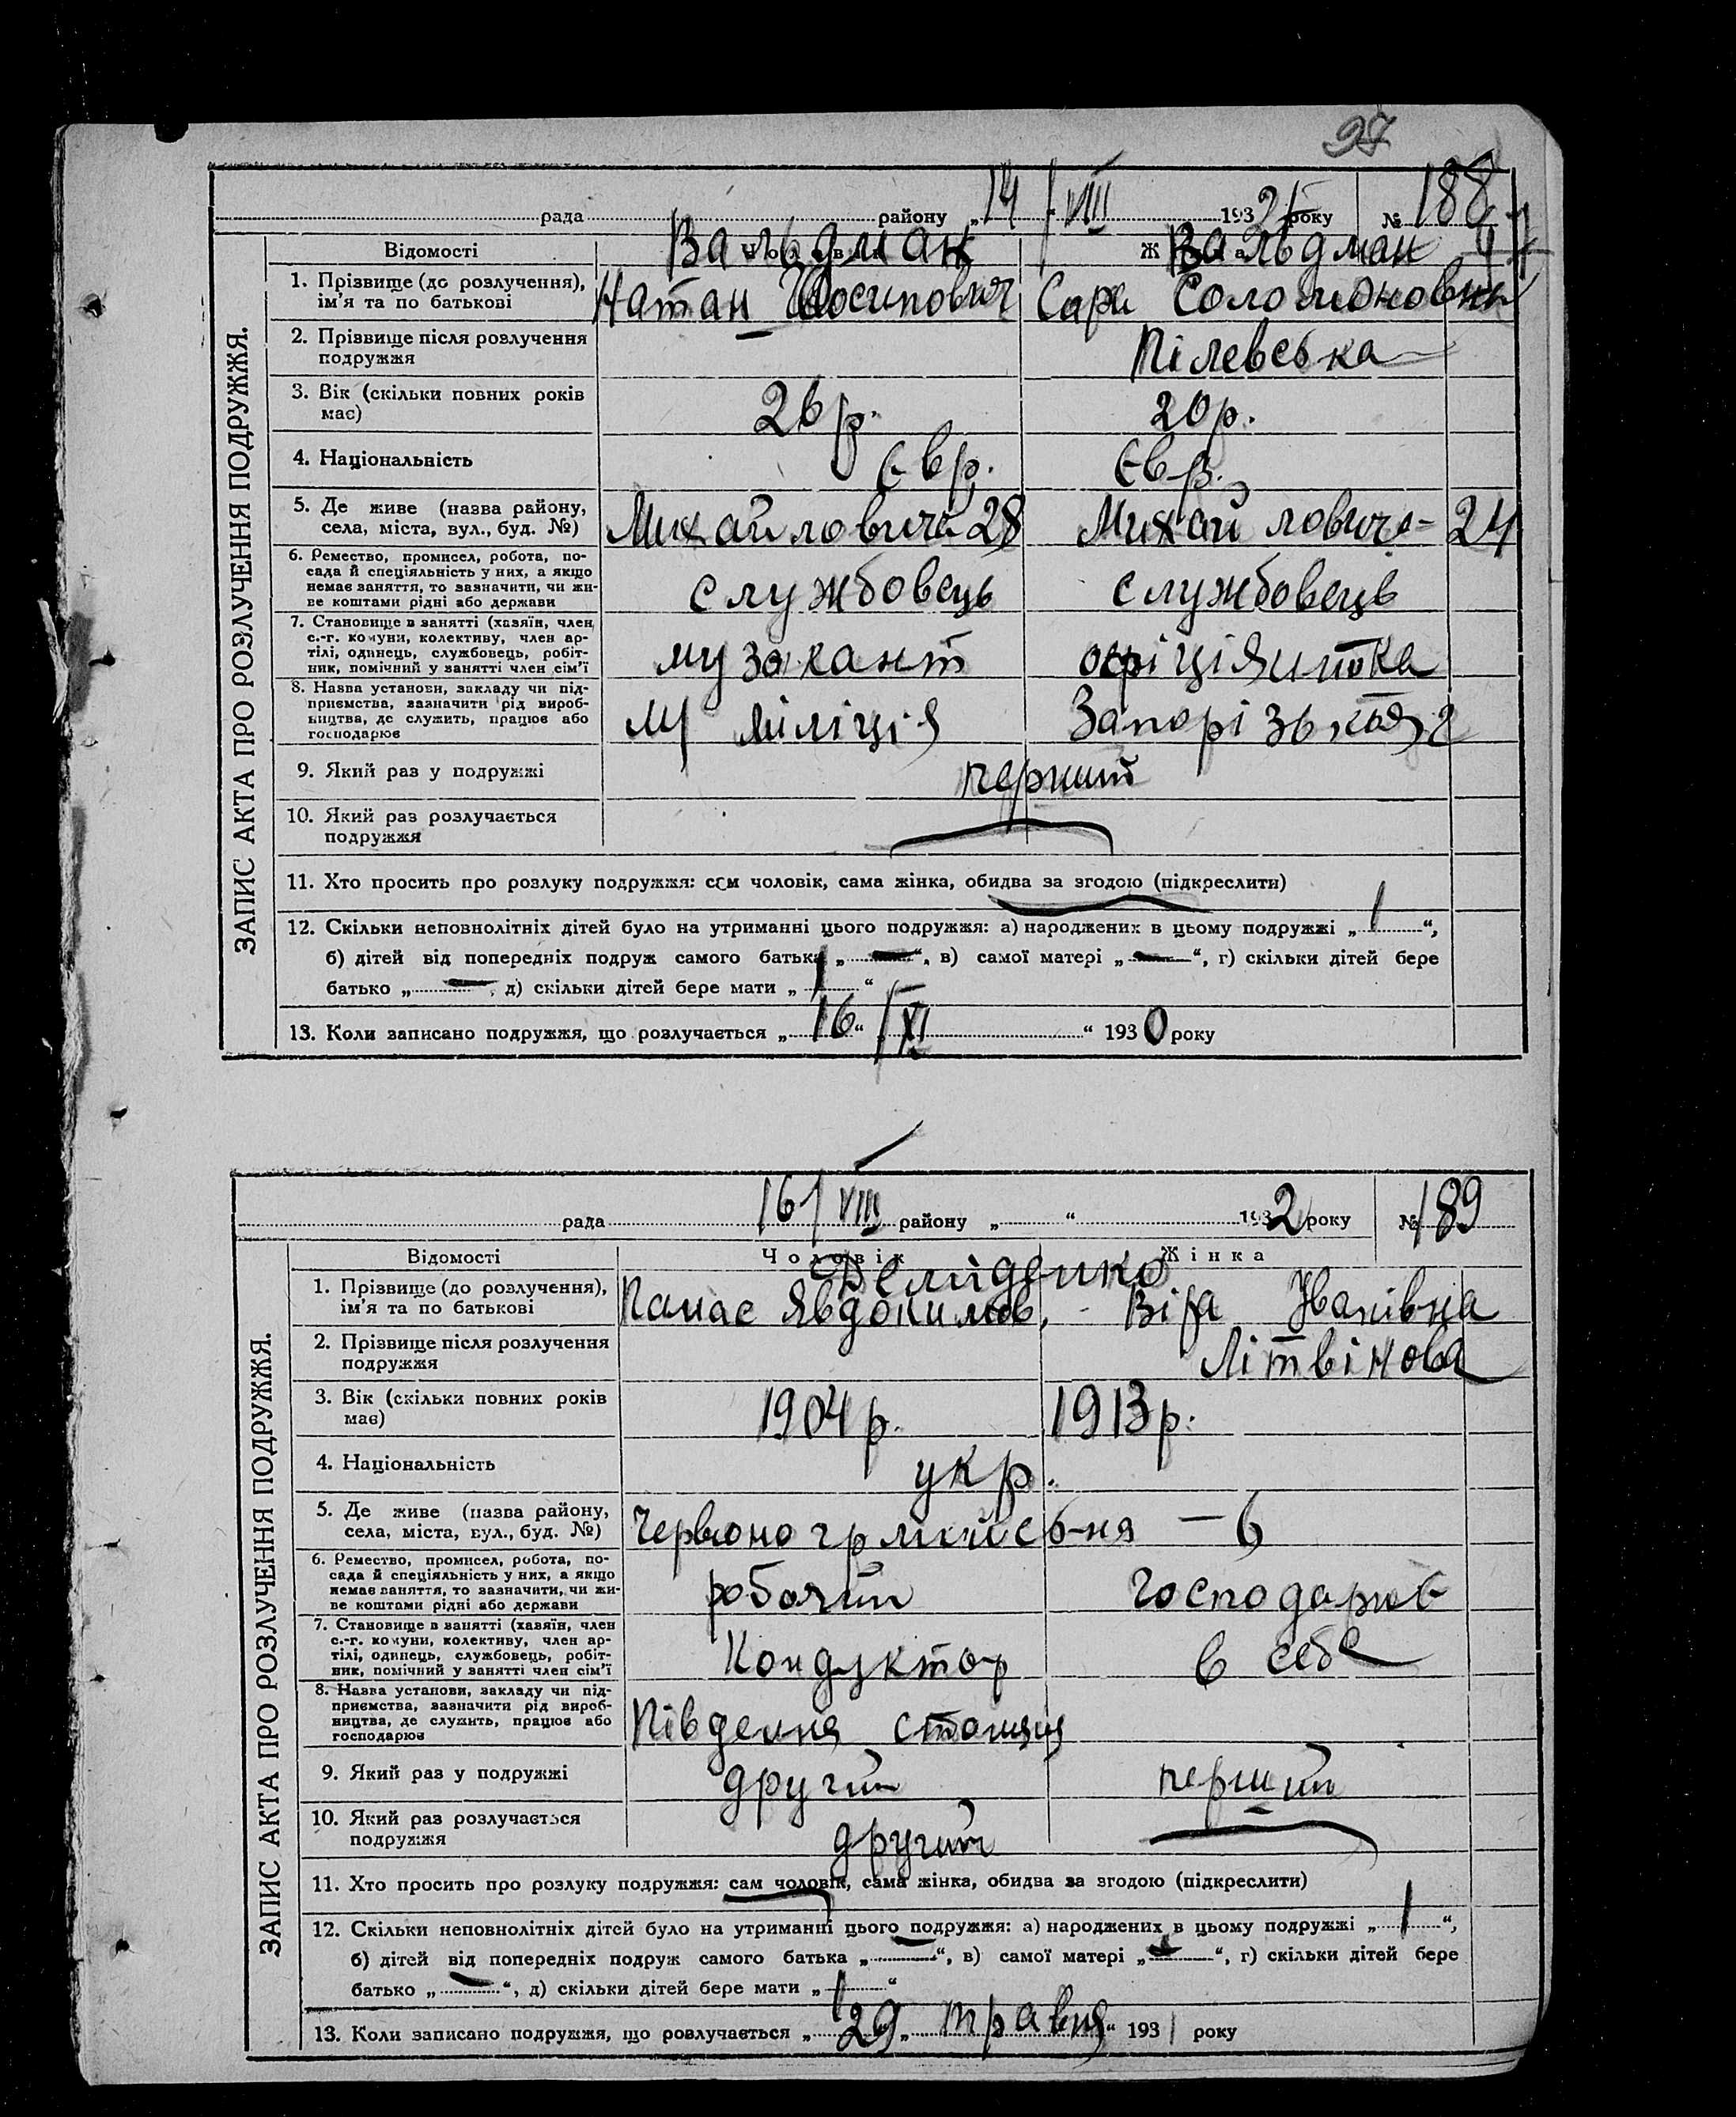 97
рада району „14 / VIII 1932 року № 188
Відомості
Вальдман Вальдман
1. Прізвище (до розлучення), ім'я та по батькові Натан Йосипович Сара Соломоновна
2. Прізвище після розлучення подружжя — Пілевська
3. Вік (скільки повних років має) 26 р. 20 р.
4. Національність Євр. Євр.
5. Де живе (назва району, села, міста, вул., буд. №) Михайловича 28 Михайловича - 24
6. Ремество, промисел, робота, по-
сада й спеціяльність у них, а якщо
немає заняття, то зазначити, чи жи-
ве коштами рідні або держави службовець службовець
7. Становище в занятті (хазяїн, член
с.-г. комуни, колективу, член ар-
тілі, одинець, службовець, робіт-
ник, помічний у занятті член сім'ї музикант офіціянтка
8. Назва установи, закладу чи під-
приємства, зазначити рід вироб-
ництва, де служить, працює або
господарює міліція
9. Який раз у подружжі перший
10. Який раз розлучається подружжя
11. Хто просить про розлуку подружжя: сам чоловік, сама жінка, обидва за згодою (підкреслити)
12. Скільки неповнолітніх дітей було на утриманні цього подружжя: а) народжених в цьому подружжі „ 1 “,
б) дітей від попередніх подруж самого батька „ — “, в) самої матері „ — “, г) скільки дітей бере
батько „ — “, д) скільки дітей бере мати „ 1 “
13. Коли записано подружжя, що розлучається „ 16 “ / XI “ 1930 року
ЗАПИС АКТА ПРО РОЗЛУЧЕННЯ ПОДРУЖЖЯ.
рада 16 / VIII району „ “ 1932 року № 189
Відомості Чоловік Жінка
Демиденко
1. Прізвище (до розлучення), ім'я та по батькові Панас Явдокимов. - Віра Іванівна
2. Прізвище після розлучення подружжя Літвінова
3. Вік (скільки повних років має) 1904 р. 1913 р.
4. Національність укр.
5. Де живе (назва району, села, міста, вул., буд. №) — 6
6. Ремество, промисел, робота, по-
сада й спеціяльність у них, а якщо
немає заняття, то зазначити, чи жи-
ве коштами рідні або держави робочий господарює
7. Становище в занятті (хазяїн, член
с.-г. комуни, колективу, член ар-
тілі, одинець, службовець, робіт-
ник, помічний у занятті член сім'ї Кондуктор в себе
8. Назва установи, закладу чи під-
приємства, зазначити рід вироб-
ництва, де служить, працює або
господарює Південна станція
9. Який раз у подружжі другий перший
10. Який раз розлучається подружжя другий
11. Хто просить про розлуку подружжя: сам чоловік, сама жінка, обидва за згодою (підкреслити)
12. Скільки неповнолітніх дітей було на утриманні цього подружжя: а) народжених в цьому подружжі „ 1 “,
б) дітей від попередніх подруж самого батька „ — “, в) самої матері „ — “, г) скільки дітей бере
батько „ — “, д) скільки дітей бере мати „ 1 “
13. Коли записано подружжя, що розлучається „ 29 „ травня “ 1931 року
ЗАПИС АКТА ПРО РОЗЛУЧЕННЯ ПОДРУЖЖЯ.